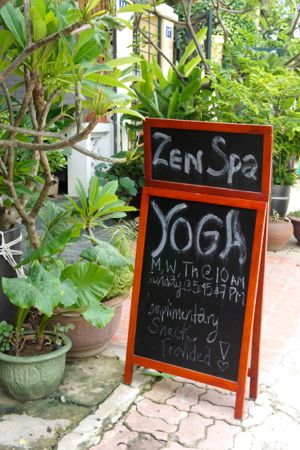 Zen Spa
YOGA
M, W, Th @ 10 AM
Sunday @ 5:45-7 PM
Complimentary
Snack
Provided!